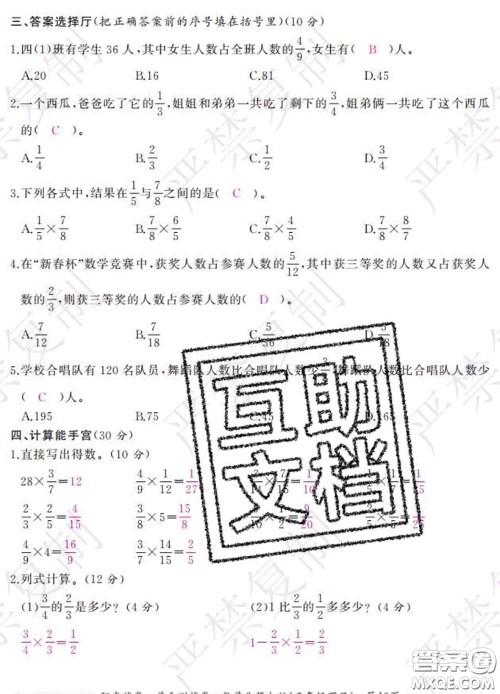 三、答案选择厅(把正确答案前的序号填在括号里)(10 分)
1.四(1)班有学生 36 人,其中女生人数占全班人数的4/9,女生有( B )人。
A.20 B.16 C.81 D.45
2.一个西瓜,爸爸吃了它的1/3,姐姐和弟弟一共吃了剩下的3/4,姐弟俩一共吃了这个西瓜
的( C )。
A.1/4 B.2/3 C.1/2 D.3/4
3.下列各式中,结果在1/5与7/8之间的是( C )。
A.1/5×7/8 B.7/8×6/5 C.7/8×4/5 D.7/8×8/7
4.在“新春杯”数学竞赛中,获奖人数占参赛人数的5/12,其中获三等奖的人数又占获奖人
数的2/3,则获三等奖的人数占参赛人数的( D )。
A.7/12 B.7/18 C.5/36 D.5/18
5.学校合唱队有 120 名队员,舞蹈队人数比合唱队人数少 舞蹈队人数比合唱队人数少
( C )人。
A.195 B.75 C.45 D.165
四、计算能手宫(30 分)
1.直接写出得数。(10 分)
28×3/7=12 4/9×1/12=1/27
2/3×2/5=4/15 3/8×5=15/8
4/9×4=16/9 3/7×14/15=2/5
2.列式计算。(12 分)
(1)3/4的2/3是多少? (4 分) (2)1 比2/3的1/2多多少? (4 分)
3/4×2/3=1/2 1-2/3×1/2=2/3
互助
文档
严禁复制